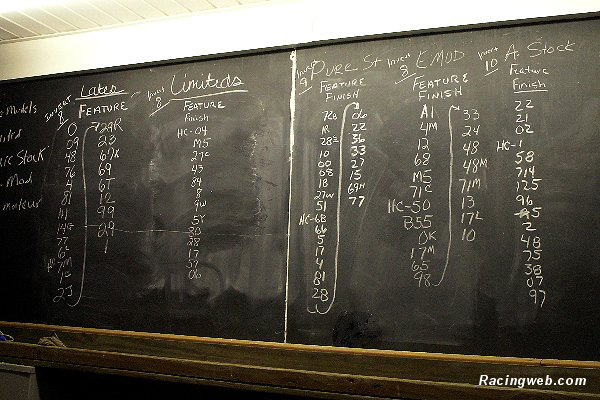 Lates
FEATURE
INSERT
8
0
09
48
76
4
81
41
14G
77
7M
2J
29R
23
69
6T
12
99
29
1
Insert
8
Limiteds
FEATURE
Finish
HC-04
M5
27C
43
84
8
9W
5Y
30
28
17
57
06
e Models
ited
Stock
Mod
mateur
Insert
9
Pure St
FEATURE
FINISH
10
00
08
18
27W
51
HC-6B
66
5
17
4
81
2B
06
22
36
33
27
15
69M
77
Insert
8
EMOD
FEATURE
FINISH
A1
4M
12
68
M5
71C
HC-50
B55
0K
17M
65
98
33
24
48
48M
71M
13
17L
10
Insert
10
A. Stock
Feature
Finish
22
21
02
HC-1
58
714
125
96
A5
2
48
75
38
07
97
Racingweb.com